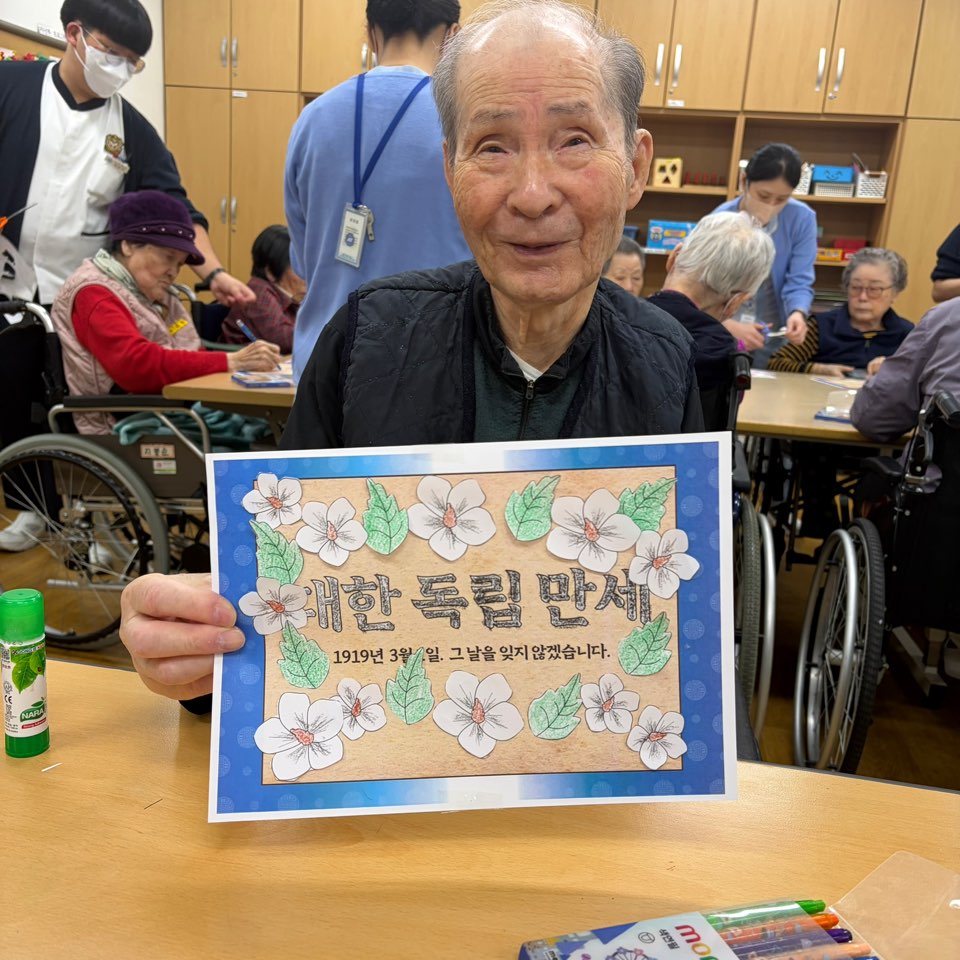 대한 독립 만세
1919년 3월 1일. 그 날을 잊지 않겠습니다.
NARA